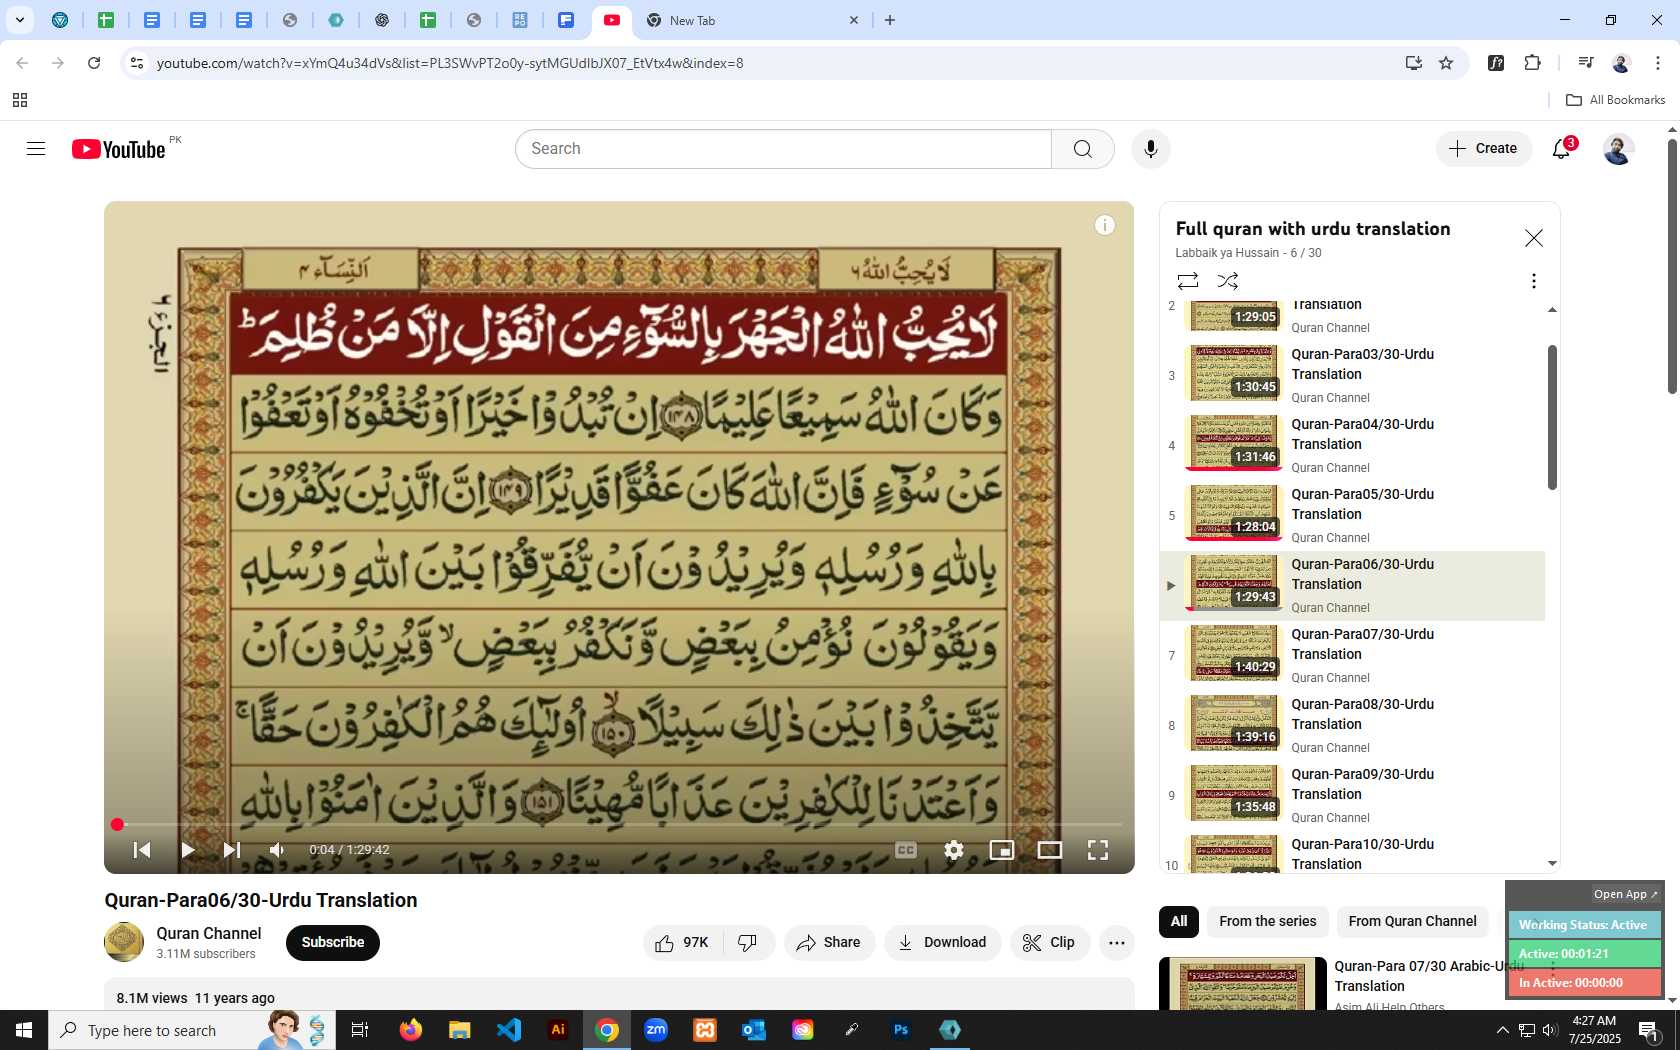 New Tab
youtube.com/watch?v=xYmQ4u34dVs&list=PL3SWvPT2o0y-sytMGUdIbJX07_EtVtx4w&index=8
All Bookmarks
YouTube PK
Search
Create
3
اَلنِّسَآء ۴
لَا یُحِبُّ اللهُ ۶
الجزء ۶
لَا یُحِبُّ اللهُ الْجَهْرَ بِالسُّوْٓءِ مِنَ الْقَوْلِ اِلَّا مَنْ ظُلِمَ ؕ
وَكَانَ اللهُ سَمِیْعًا عَلِیْمًا ﴿۱۴۸﴾ اِنْ تُبْدُوْا خَیْرًا اَوْ تُخْفُوْهُ اَوْ تَعْفُوْا
عَنْ سُوْٓءٍ فَاِنَّ اللهَ كَانَ عَفُوًّا قَدِیْرًا ﴿۱۴۹﴾ اِنَّ الَّذِیْنَ یَكْفُرُوْنَ
بِاللهِ وَرُسُلِهٖ وَیُرِیْدُوْنَ اَنْ یُّفَرِّقُوْا بَیْنَ اللهِ وَرُسُلِهٖ
وَیَقُوْلُوْنَ نُؤْمِنُ بِبَعْضٍ وَّنَكْفُرُ بِبَعْضٍ ۙ وَّیُرِیْدُوْنَ اَنْ
یَّتَّخِذُوْا بَیْنَ ذٰلِكَ سَبِیْلًا ﴿۱۵۰﴾ۙ اُولٰٓئِكَ هُمُ الْكٰفِرُوْنَ حَقًّا ۚ
وَاَعْتَدْنَا لِلْكٰفِرِیْنَ عَذَابًا مُّهِیْنًا ﴿۱۵۱﴾ وَالَّذِیْنَ اٰمَنُوْا بِاللهِ
0:04 / 1:29:42
CC
Quran-Para06/30-Urdu Translation
Quran Channel
3.11M subscribers
Subscribe
97K
Share
Download
Clip
8.1M views 11 years ago
Full quran with urdu translation
Labbaik ya Hussain - 6 / 30
2
1:29:05
Translation
Quran Channel
3
1:30:45
Quran-Para03/30-Urdu
Translation
Quran Channel
4
1:31:46
Quran-Para04/30-Urdu
Translation
Quran Channel
5
1:28:04
Quran-Para05/30-Urdu
Translation
Quran Channel
1:29:43
Quran-Para06/30-Urdu
Translation
Quran Channel
7
1:40:29
Quran-Para07/30-Urdu
Translation
Quran Channel
8
1:39:16
Quran-Para08/30-Urdu
Translation
Quran Channel
9
1:35:48
Quran-Para09/30-Urdu
Translation
Quran Channel
10
Quran-Para10/30-Urdu
Translation
All
From the series
From Quran Channel
Quran-Para 07/30 Arabic-Urdu
Translation
Asim Ali Help Others
Open App
Working Status: Active
Active: 00:01:21
In Active: 00:00:00
Type here to search
Ai
zm
Ps
4:27 AM
7/25/2025
1